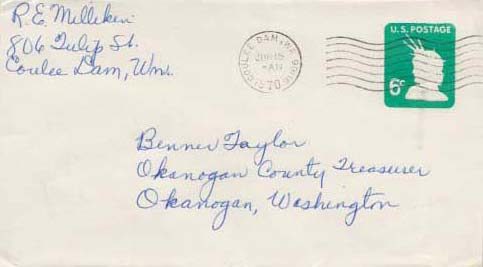 R.E. Milliken
806 Tulip St.
Coulee Dam, Wn.
COULEE DAM, WA 99116
JUN 15
AM
70
U.S. POSTAGE
6¢
Benner Taylor
Okanogan County Treasurer
Okanogan, Washington